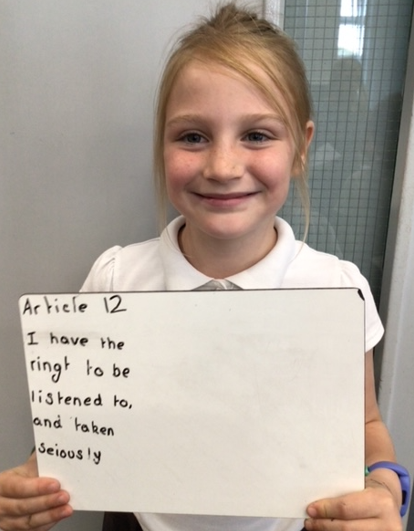 Article 12
I have the
ringt to be
listened to,
and taken
seiously